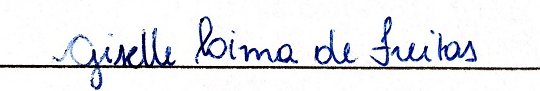 Giselle Loima de Freitas